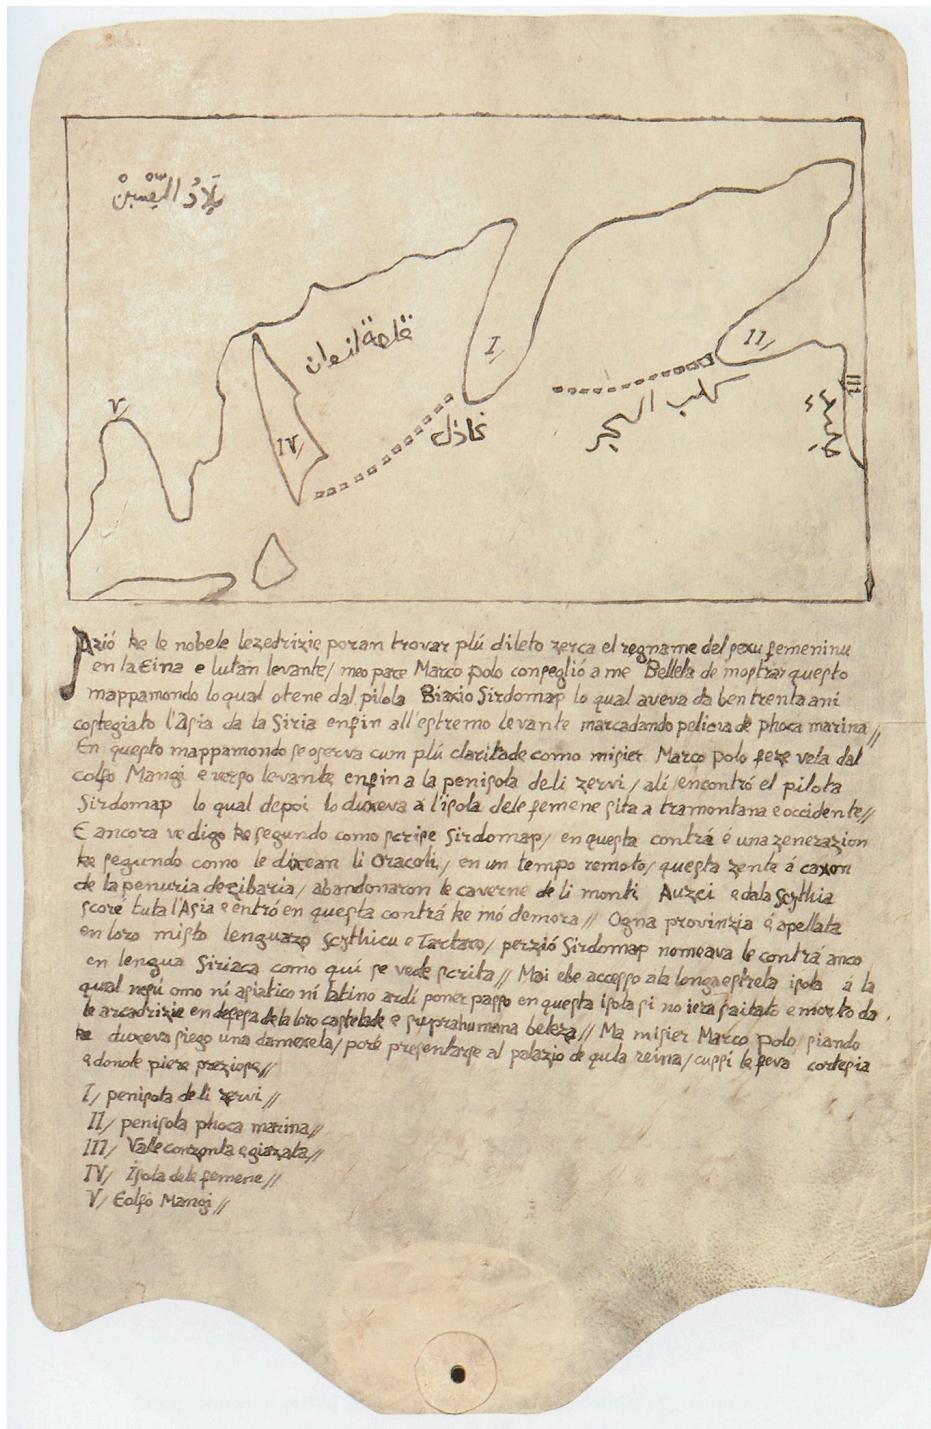 بِلَادُ الصِّينْ
V/
I/
II/
III
IV/
كلب البحر
Azió ke le nobele lezetrizie poran trovar plú dileto zerca el regname del sexu femeninu
en la Cina e lutan levante/ meo pare Marco Polo conseglió a me Bellela de mostrar questo
mappamondo lo qual otene dal pilota Biaxio Sirdomap lo qual aveva da ben trenta ani
costegiato l'Asia da la Siria enfin all'estremo levante marcadando pelicia de phoca marina//
En questo mappamondo se oserva cum plú claritade como misier Marco Polo feze vela dal
colfo Mangi e verso levante enfin a la penisola de li zervi/ alí encontró el pilota
Sirdomap lo qual depoi lo duxeva a l'isola dele femene sita a tramontana e occidente//
E ancora ve digo ke segundo como scrise Sirdomap/ en questa contrá é una zenerazion
ke segundo como le dixean li Oracoli/ en un tempo remoto/ questa zente á caxon
de la penuria de cibaria/ abandonaron le caverne de li monti Auzci e dala Scythia
scoré tuta l'Asia e entró en questa contrá ke mó demora// Ogna provinzia é apellata
en loro misto lenguazo Scythicu e Tartaro/ perzió Sirdomap nomeava le contrá anco
en lengua Siriaca como quí se vede scrita// Mai ebe accesso ala longa estrela isola á la
qual nesú omo ní asiatico ní latino ardí poner passo en questa isola si no iera saitato e morto da
le arcadrizie en defesa de la loro castelade e suprahumana beleza// Ma misier Marco Polo/ siando
ke duxeva siego una damexela/ poré presentarse al palazio de qula reina/ cussí le feva cortesia
e donote piere preziose//
I/ penisola de li zervi//
II/ penisola phoca marina//
III/ Valle conzonta e giazata//
IV/ Isola dele femene//
V/ Colfo Mangi//